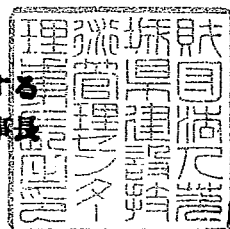 財団法人茨
城県建設技
術管理センター
理事長之印